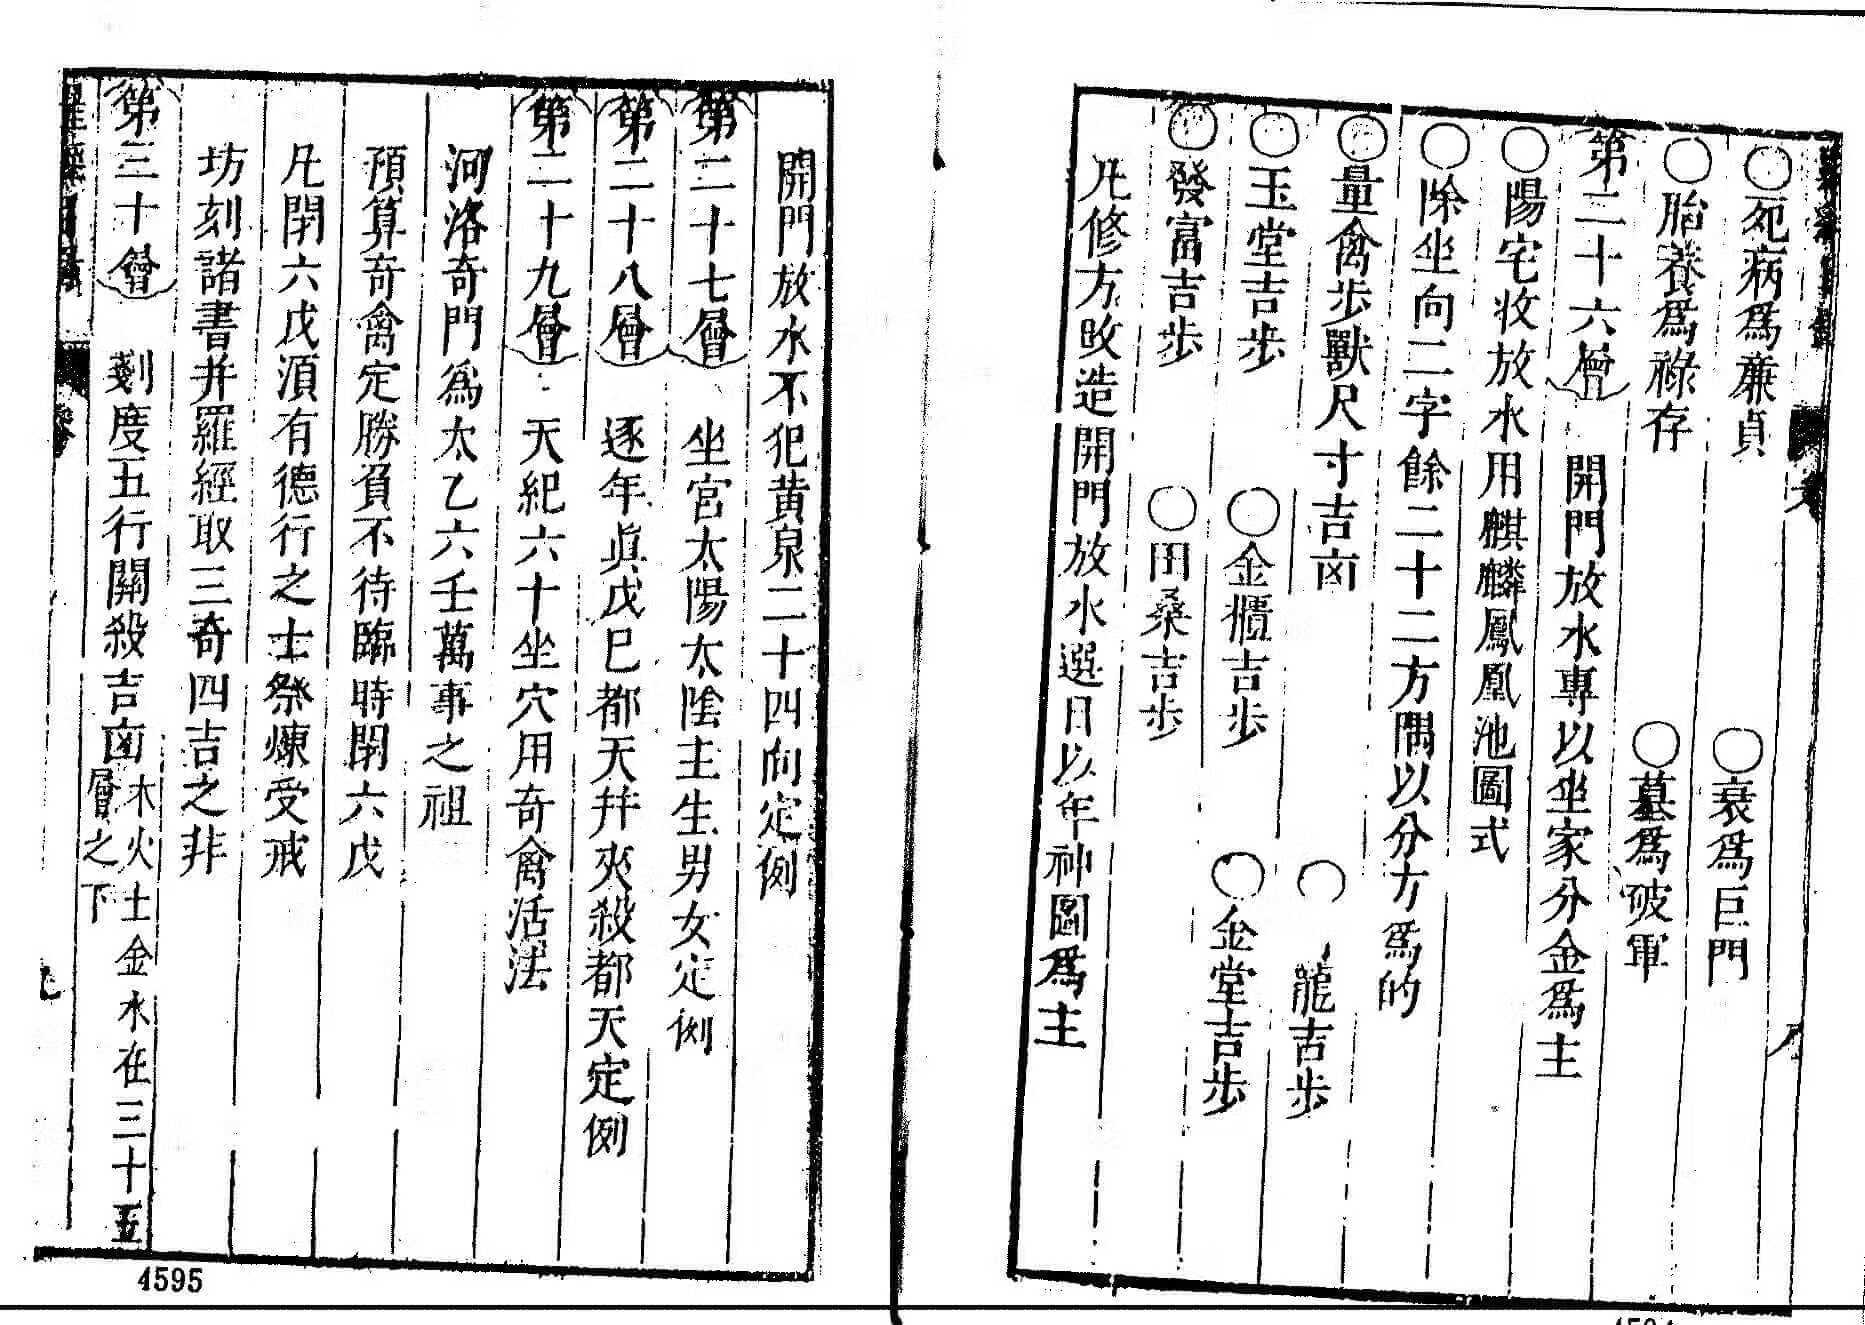 ○死病爲廉貞　○衰爲巨門
○胎養爲祿存　○墓爲破軍
第二十六層　開門放水專以坐家分金爲主
○陽宅收放水用麒麟鳳凰池圖式
○除坐向二字餘二十二方隅以分方爲的
○量禽步獸尺寸吉凶　○龍吉步
○玉堂吉步　○金櫃吉步　○金堂吉步
○發富吉步　○田桑吉步
凡修方改造開門放水選日以年神圖爲主
開門放水不犯黄泉二十四向定例
第二十七層　坐宮太陽太陰主生男女定例
第二十八層　逐年眞戊巳都天并夾殺都天定例
第二十九層　天紀六十坐穴用奇禽活法
河洛奇門爲太乙六壬萬事之祖
預算奇禽定勝負不待臨時閉六戊
凡閉六戊須有德行之士祭煉受戒
坊刻諸書并羅經取三奇四吉之非
第三十層　剗度五行關殺吉凶木火土金水在三十五層之下
4595